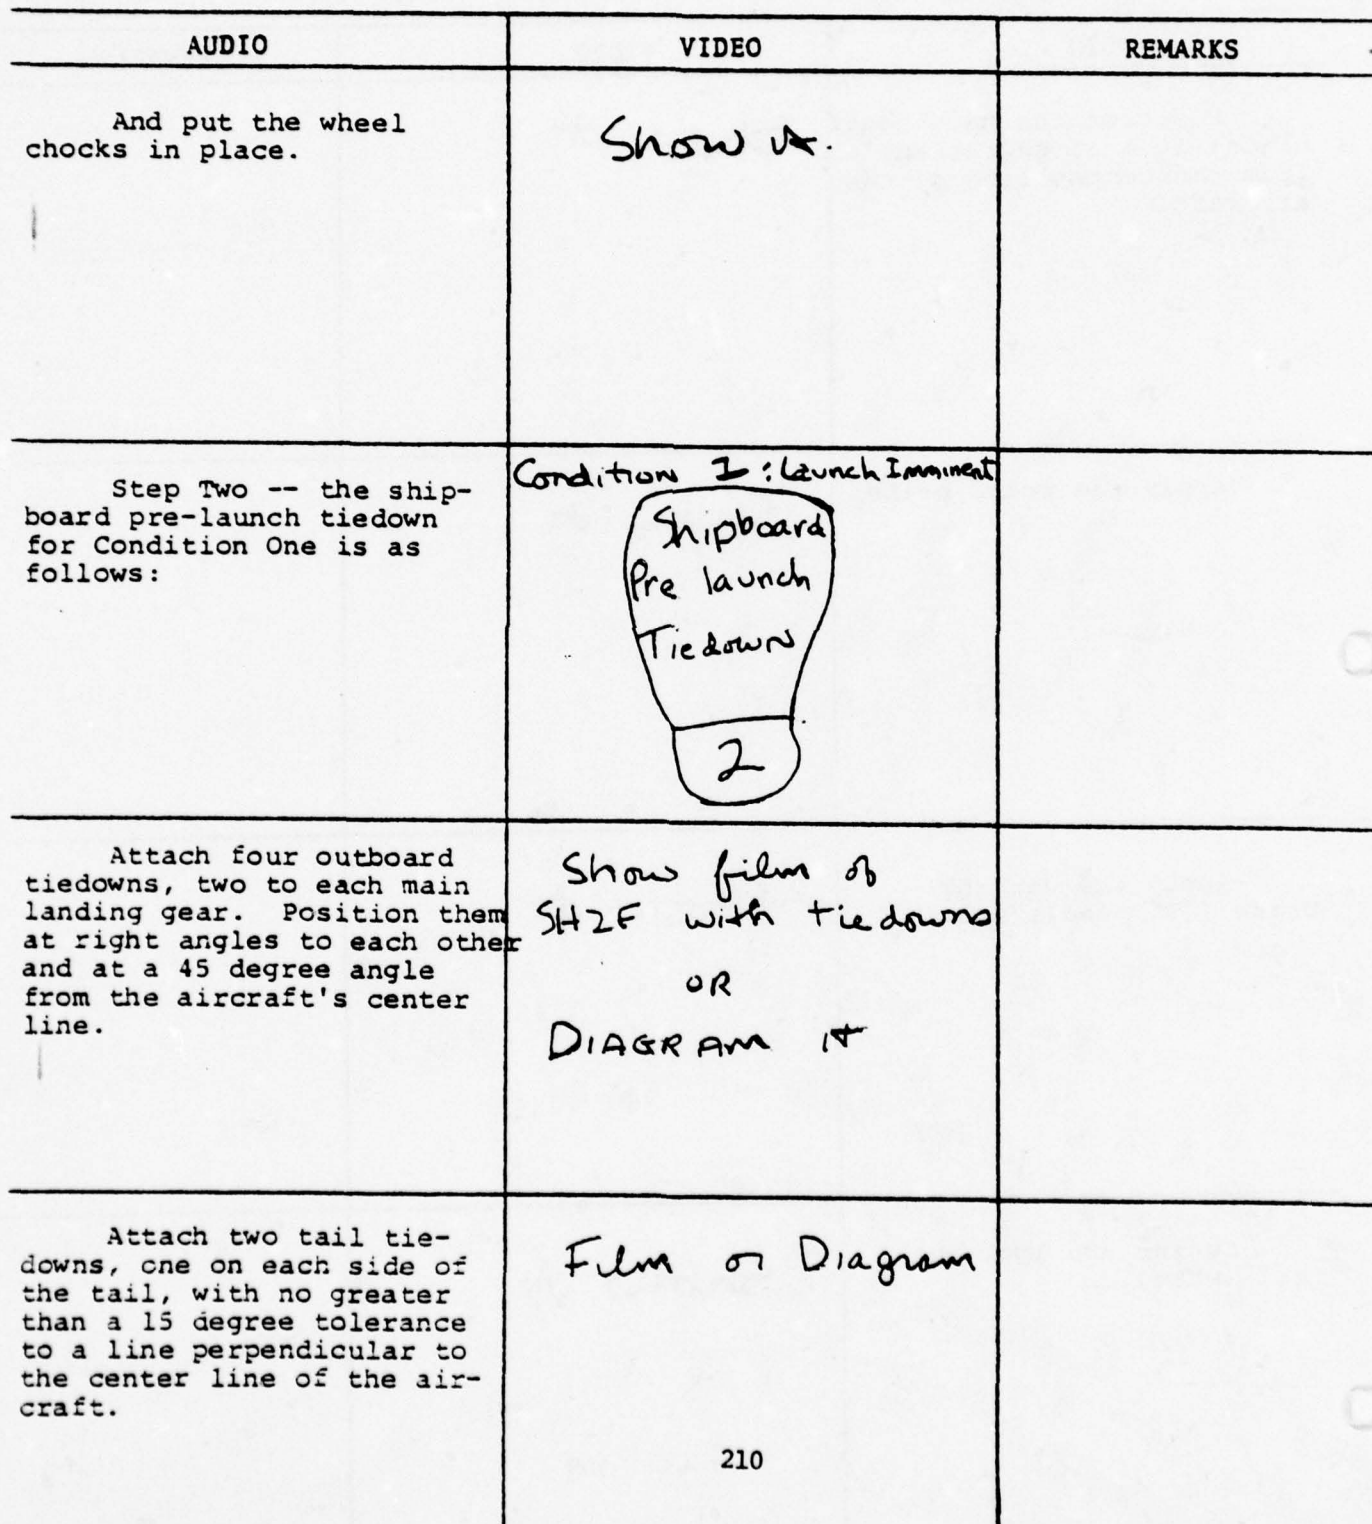 AUDIO VIDEO REMARKS
And put the wheel
chocks in place.
Show it.
Step Two -- the ship-
board pre-launch tiedown
for Condition One is as
follows:
Condition I : Launch Imminent
Shipboard
Pre launch
Tiedown
2
Attach four outboard
tiedowns, two to each main
landing gear. Position them
at right angles to each other
and at a 45 degree angle
from the aircraft's center
line.
Show film of
SH2F with tiedowns
OR
DIAGRAM it
Attach two tail tie-
downs, one on each side of
the tail, with no greater
than a 15 degree tolerance
to a line perpendicular to
the center line of the air-
craft.
Film or Diagram
210